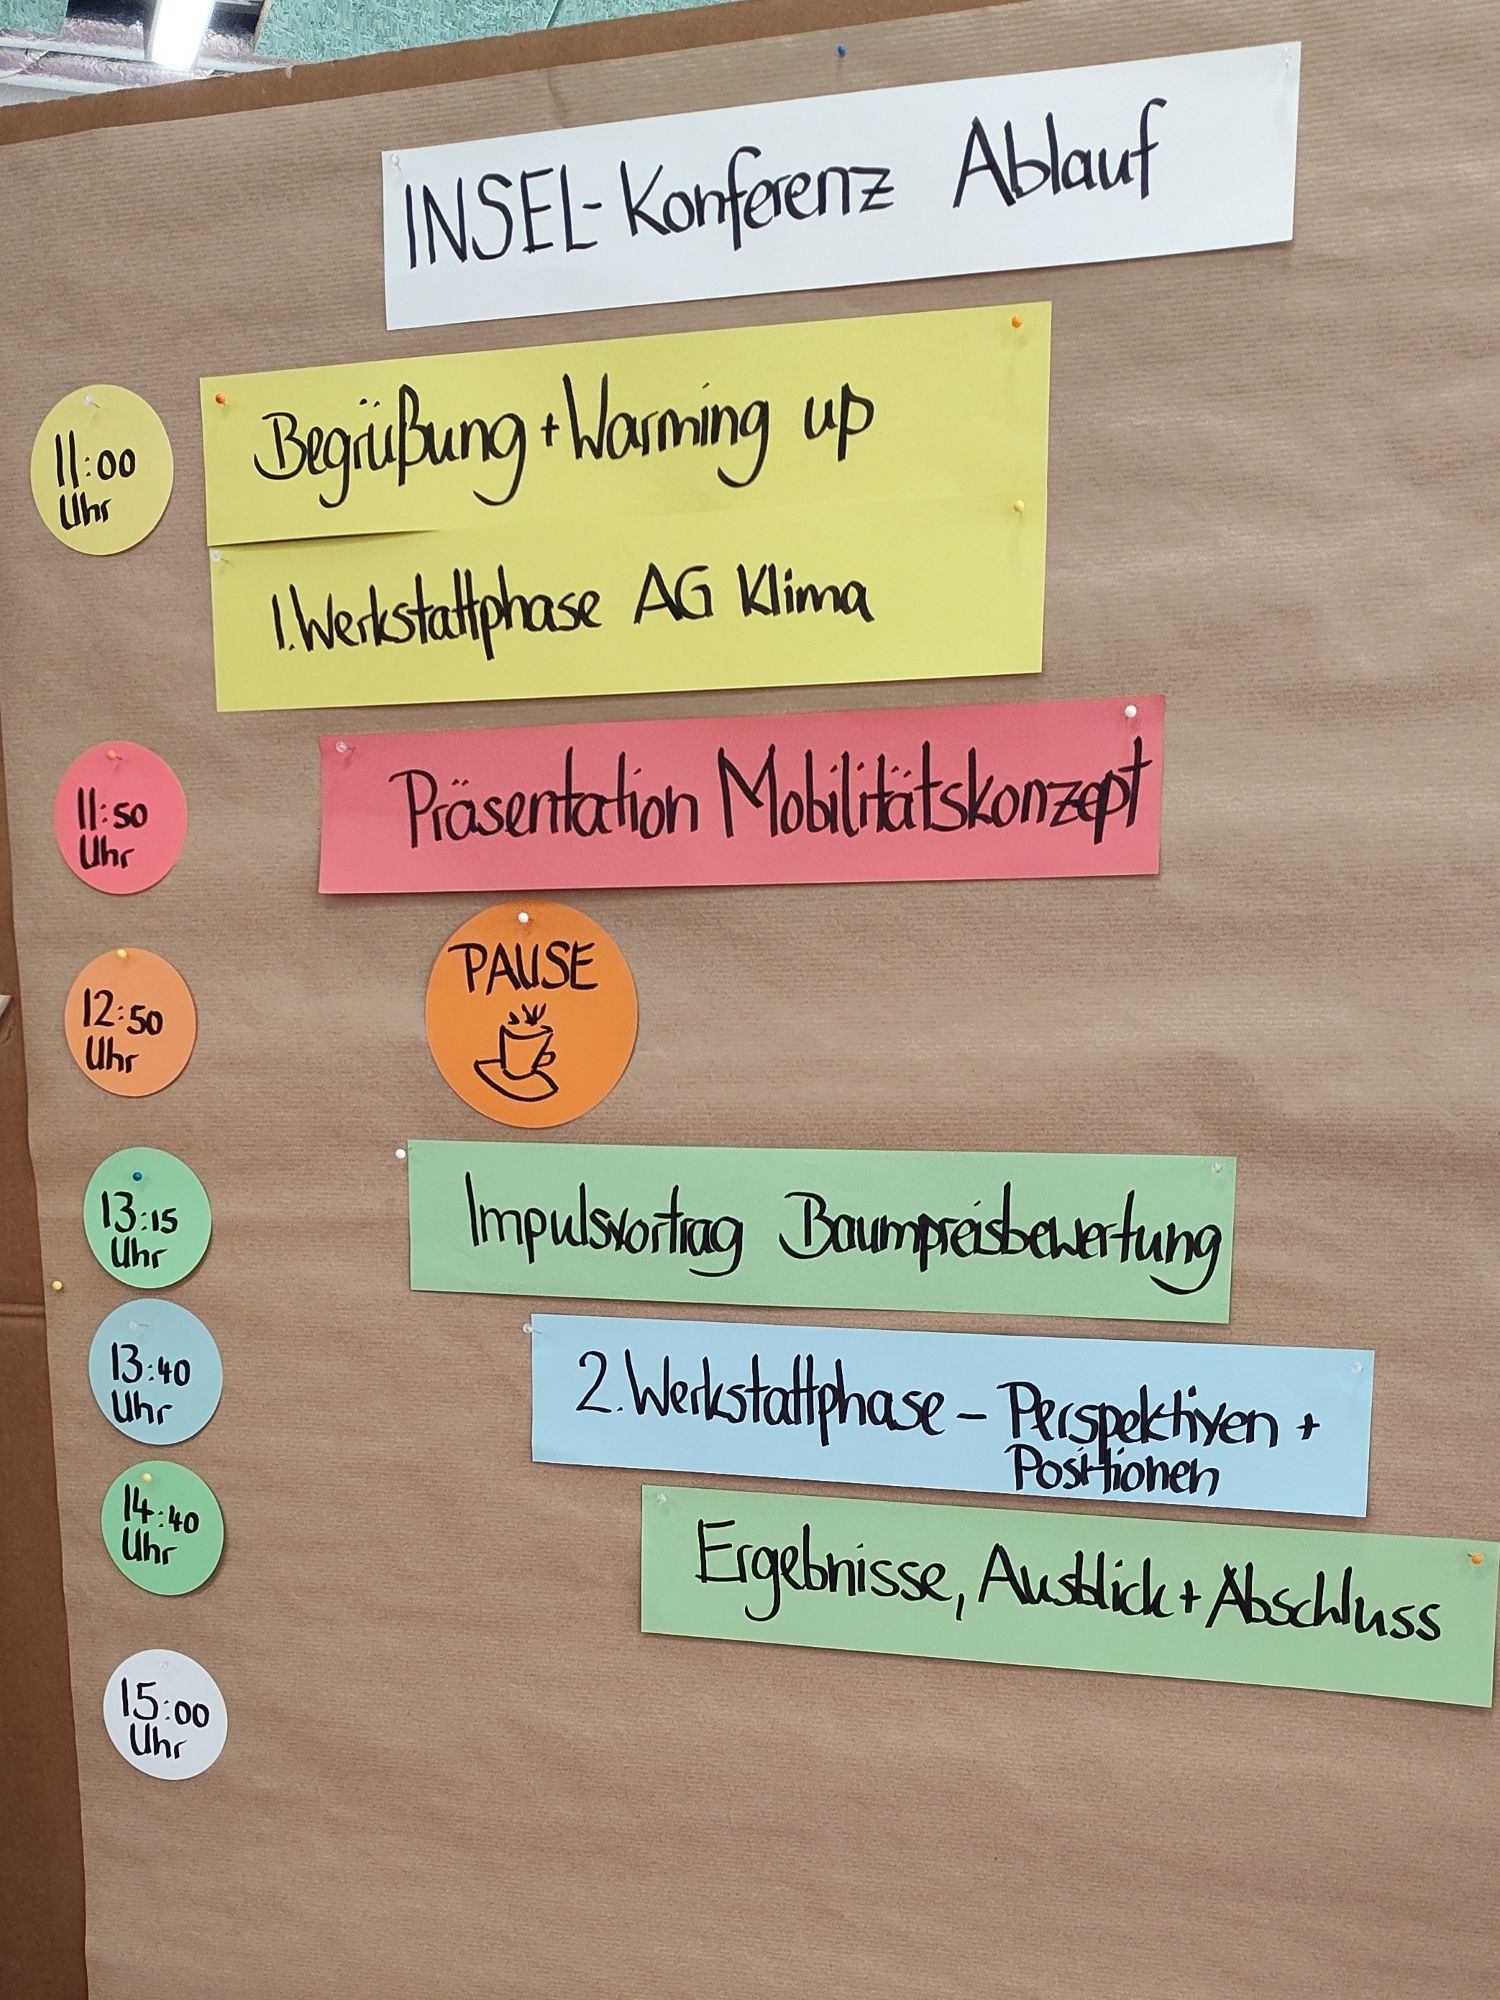 INSEL-Konferenz Ablauf
11:00
Uhr
Begrüßung + Warming up
1. Werkstattphase AG Klima
11:50
Uhr
Präsentation Mobilitätskonzept
12:50
Uhr
PAUSE
13:15
Uhr
Impulsvortrag Baumpreisbewertung
13:40
Uhr
2. Werkstattphase – Perspektiven +
Positionen
14:40
Uhr
Ergebnisse, Ausblick + Abschluss
15:00
Uhr